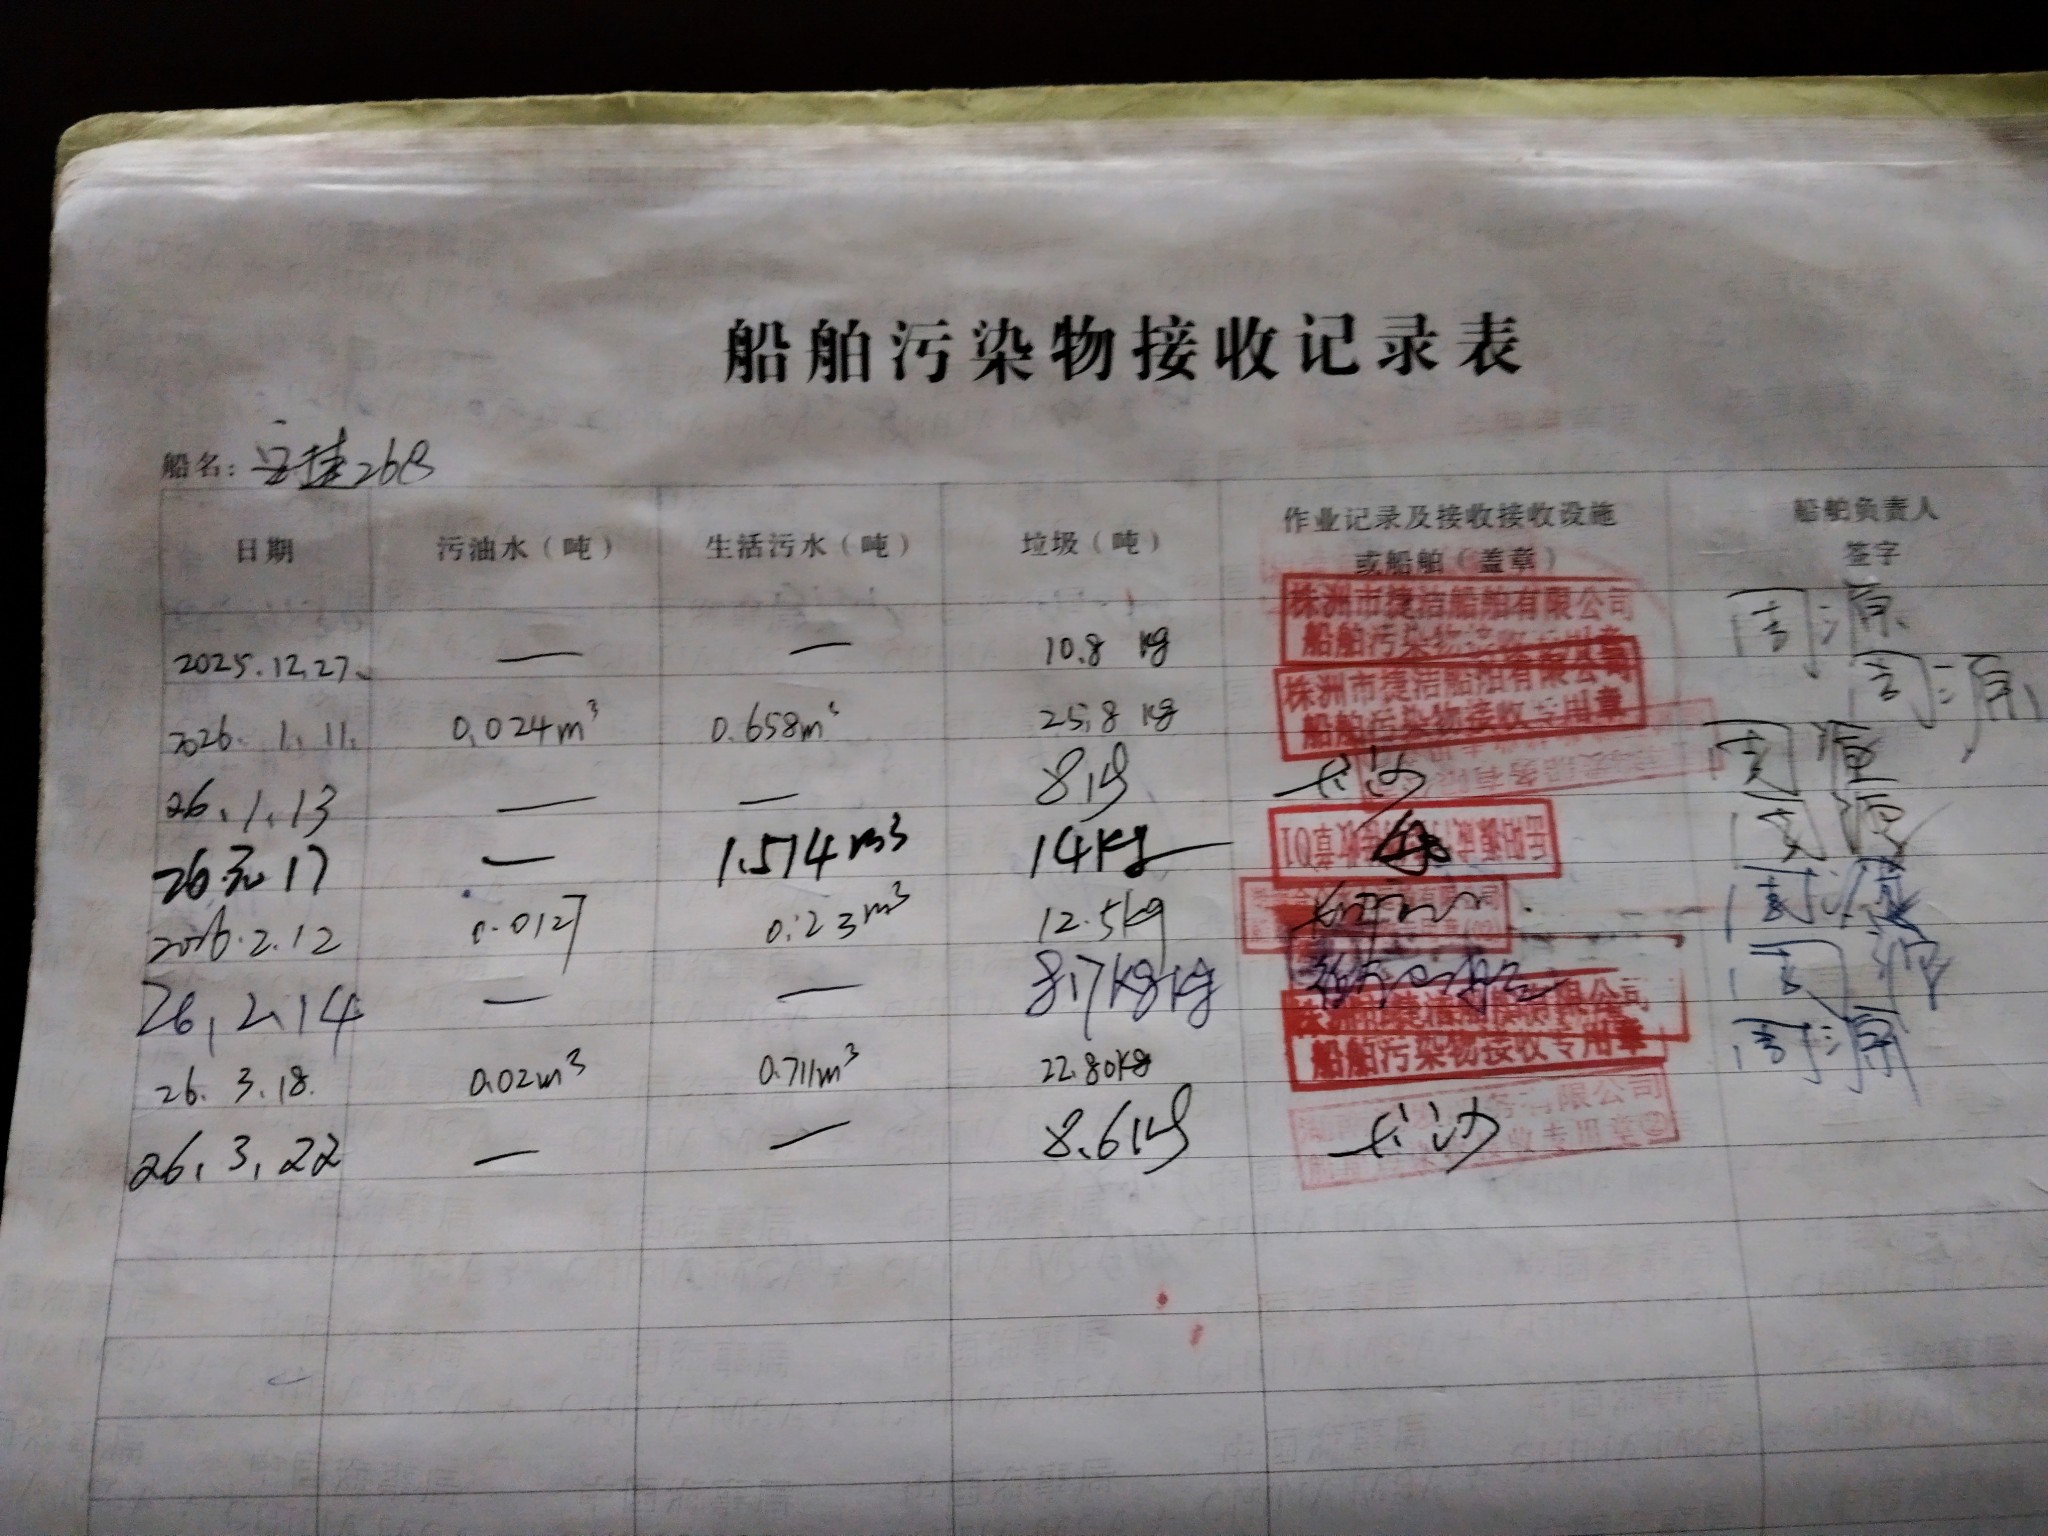 船舶污染物接收记录表
船名: 安捷268
日期 污油水（吨） 生活污水（吨） 垃圾（吨） 作业记录及接收接收设施或船舶（盖章） 船舶负责人签字
2025.12.27. — — 10.8 kg 株洲市捷洁船舶有限公司 船舶污染物接收专用章 周源
2026. 1. 11. 0.024m³ 0.658m³ 25.8 kg 株洲市捷洁船舶有限公司 船舶污染物接收专用章 周源
26.1.13 — — 8kg 长沙 周源
26. 17 — 1.514m³ 14kg 周源
2026.2.12 0.0127 0.23m³ 12.5kg 周源
26.2.14 — — 8.7kg kg 周源
26. 3.18. 0.02m³ 0.711m³ 22.80kg 船舶污染物接收专用章 周源
26.3.22 — — 8.6kg 长沙 务有限公司 收专用章②